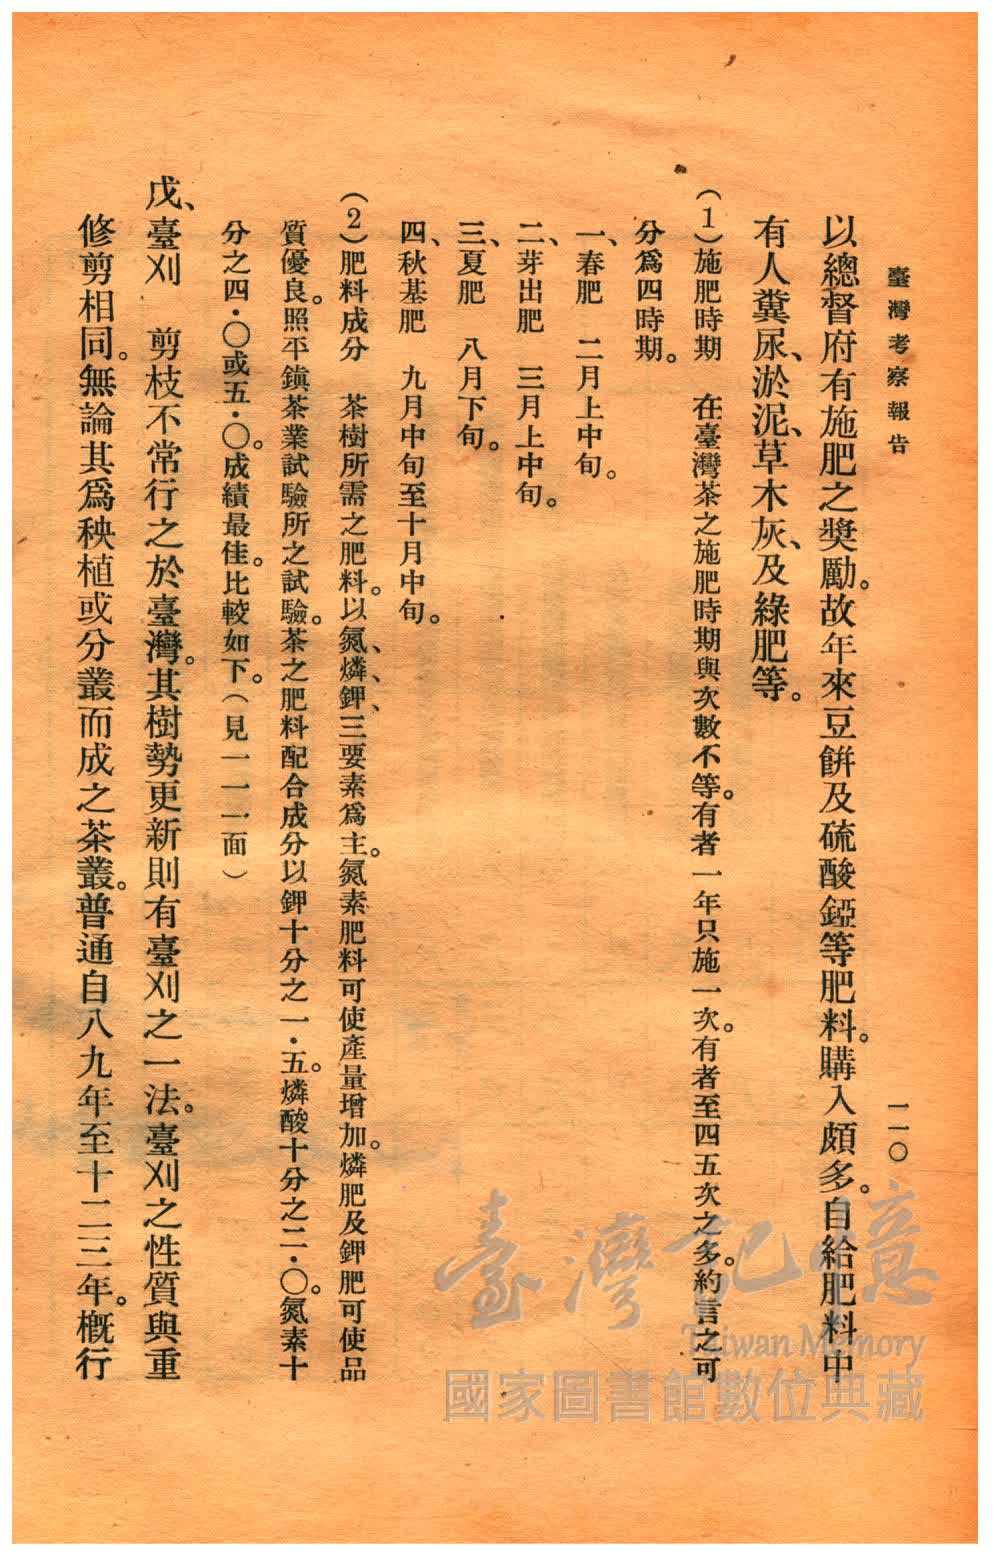 臺灣考察報告
一一〇
以總督府有施肥之獎勵。故年來豆餅及硫酸錏等肥料。購入頗多。自給肥料中
有人糞尿、淤泥、草木灰、及綠肥等。
(1)施肥時期　在臺灣茶之施肥時期與次數不等。有者一年只施一次。有者至四五次之多。約言之可
分爲四時期。
一、春肥　二月上中旬。
二、芽出肥　三月上中旬。
三、夏肥　八月下旬。
四、秋基肥　九月中旬至十月中旬。
(2)肥料成分　茶樹所需之肥料。以氮、燐、鉀、三要素爲主。氮素肥料可使產量增加。燐肥及鉀肥可使品
質優良。照平鎮茶業試驗所之試驗。茶之肥料配合成分以鉀十分之一・五。燐酸十分之二・〇。氮素十
分之四・〇或五・〇。成績最佳。比較如下。(見一一一面)
戊、臺刈　剪枝不常行之於臺灣。其樹勢更新則有臺刈之一法。臺刈之性質與重
修剪相同。無論其爲秧植或分叢而成之茶叢。普通自八九年至十二三年。槪行
臺灣記憶
Taiwan Memory
國家圖書館數位典藏